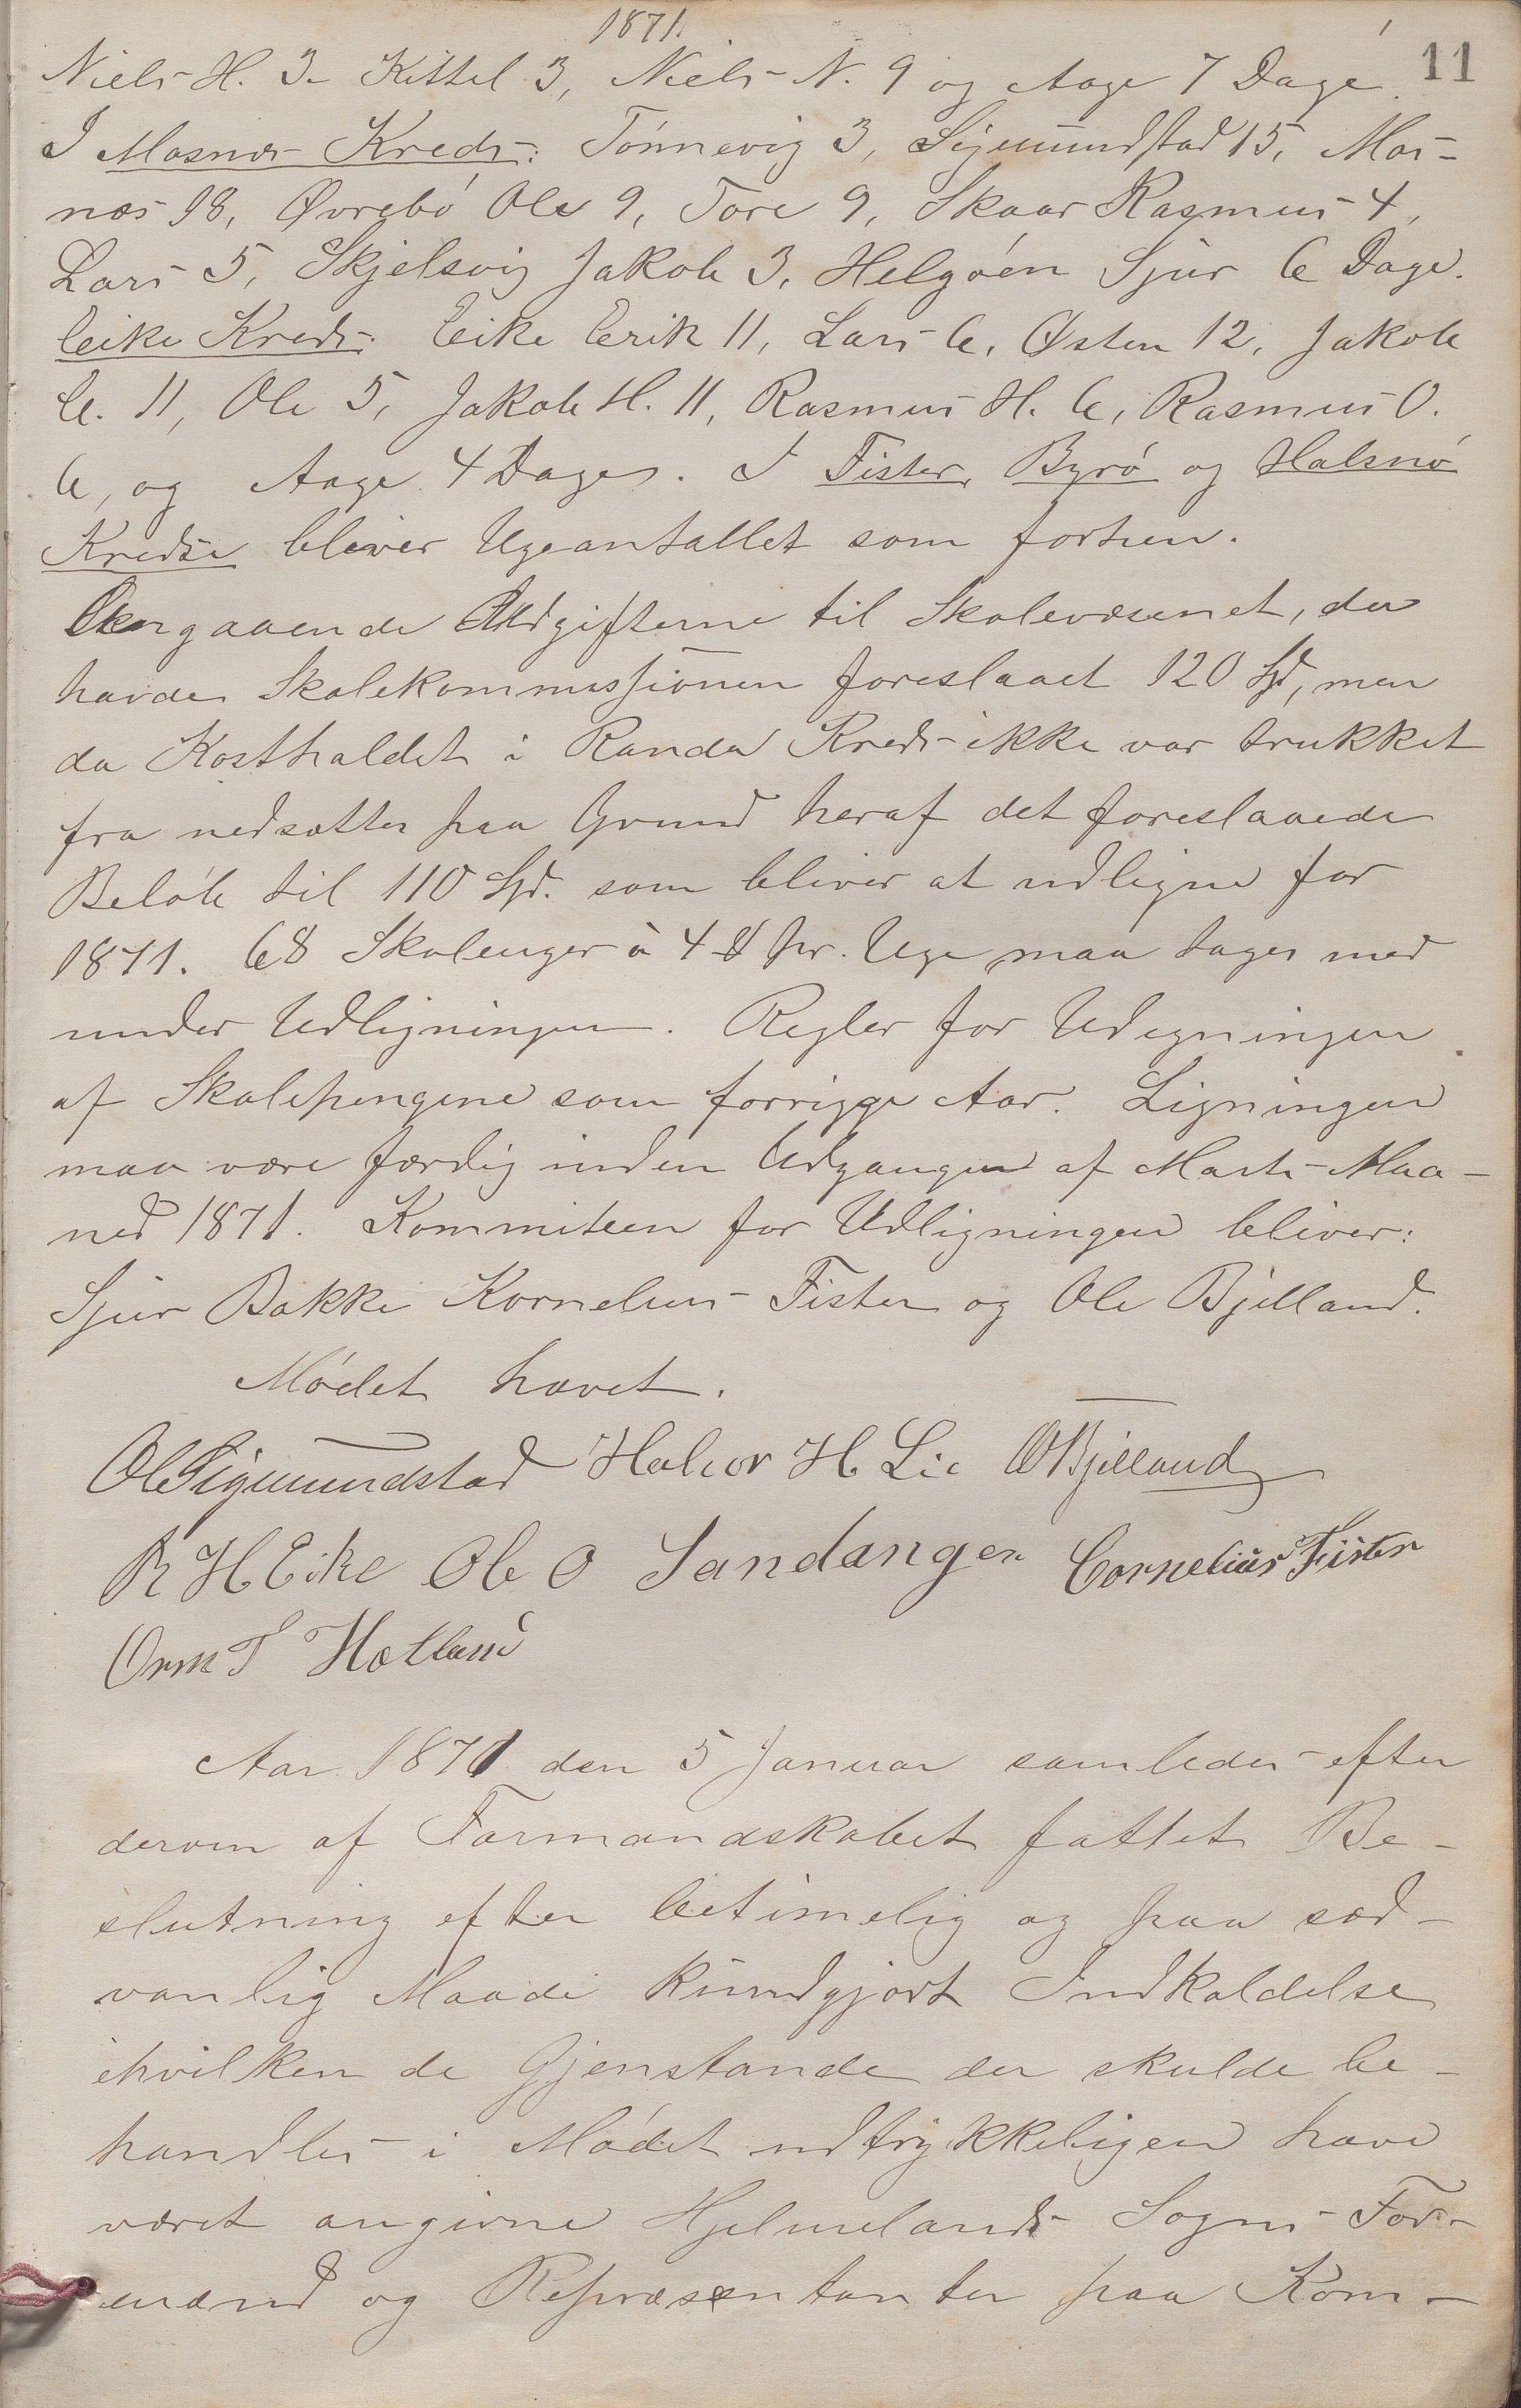 1871.
11
Niels H. 3. Kittel 3, Niels N. 9 og Aage 7 Dage.
I Mosnæs Kreds: Tönnevig 3, Sigmundstad 15, Mos-
næs 18, Øvrebö Ole 9, Tore 9, Skaar Rasmus 4,
Lars 5, Skjelsvig Jakob 3, Helgöen Sjur 6 Dage.
Eike Kreds. Eike Erik 11, Lars 6, Østen 12, Jakob
E. 11, Ole 5, Jakob H. 11, Rasmus H. 6, Rasmus O.
6, og Aage 4 Dage. I Fister, Byrö og Halsnö
Kredse bliver Ugeantallet som forhen.
Angaaende Udgifterne til Skolevæsenet, da
havde Skolekommissionen foreslaaet 120 Spd, men
da Kostholdet i Randø Kreds ikke var trukket
fra nedsættes paa Grund heraf det foreslaaede
Belöb til 110 Spd. som bliver at udligne for
1871. 68 Skoleuger à 4 ß pr. Uge maa tages med
under Udligningen. Regler for Udegningen
af Skolepengene som forrigge Aar. Ligningen
maa være færdig inden Udgangen af Marts Maa-
ned 1871. Kommiteen for Udligningen bliver:
Sjur Bakke Kornelius Fister og Ole Bjelland.
Mödet hævet.
Ol Sigmundstad Halvor H Lie O Bjelland
R H Eike Ole O Sandanger Cornelius Fister
Orm T Hætland
Aar 1871 den 5 Januar samledes efter
derom af Formandskabet fattet Be-
slutning efter betimelig og paa sæd-
vanlig Maade kundgjort Indkaldelse
ihvilken de Gjenstande der skulde be-
handles i Mödet udtrykkeligen have
været angivne Hjelmelands Sogns For-
mænd og Repræsentanter paa Kom-